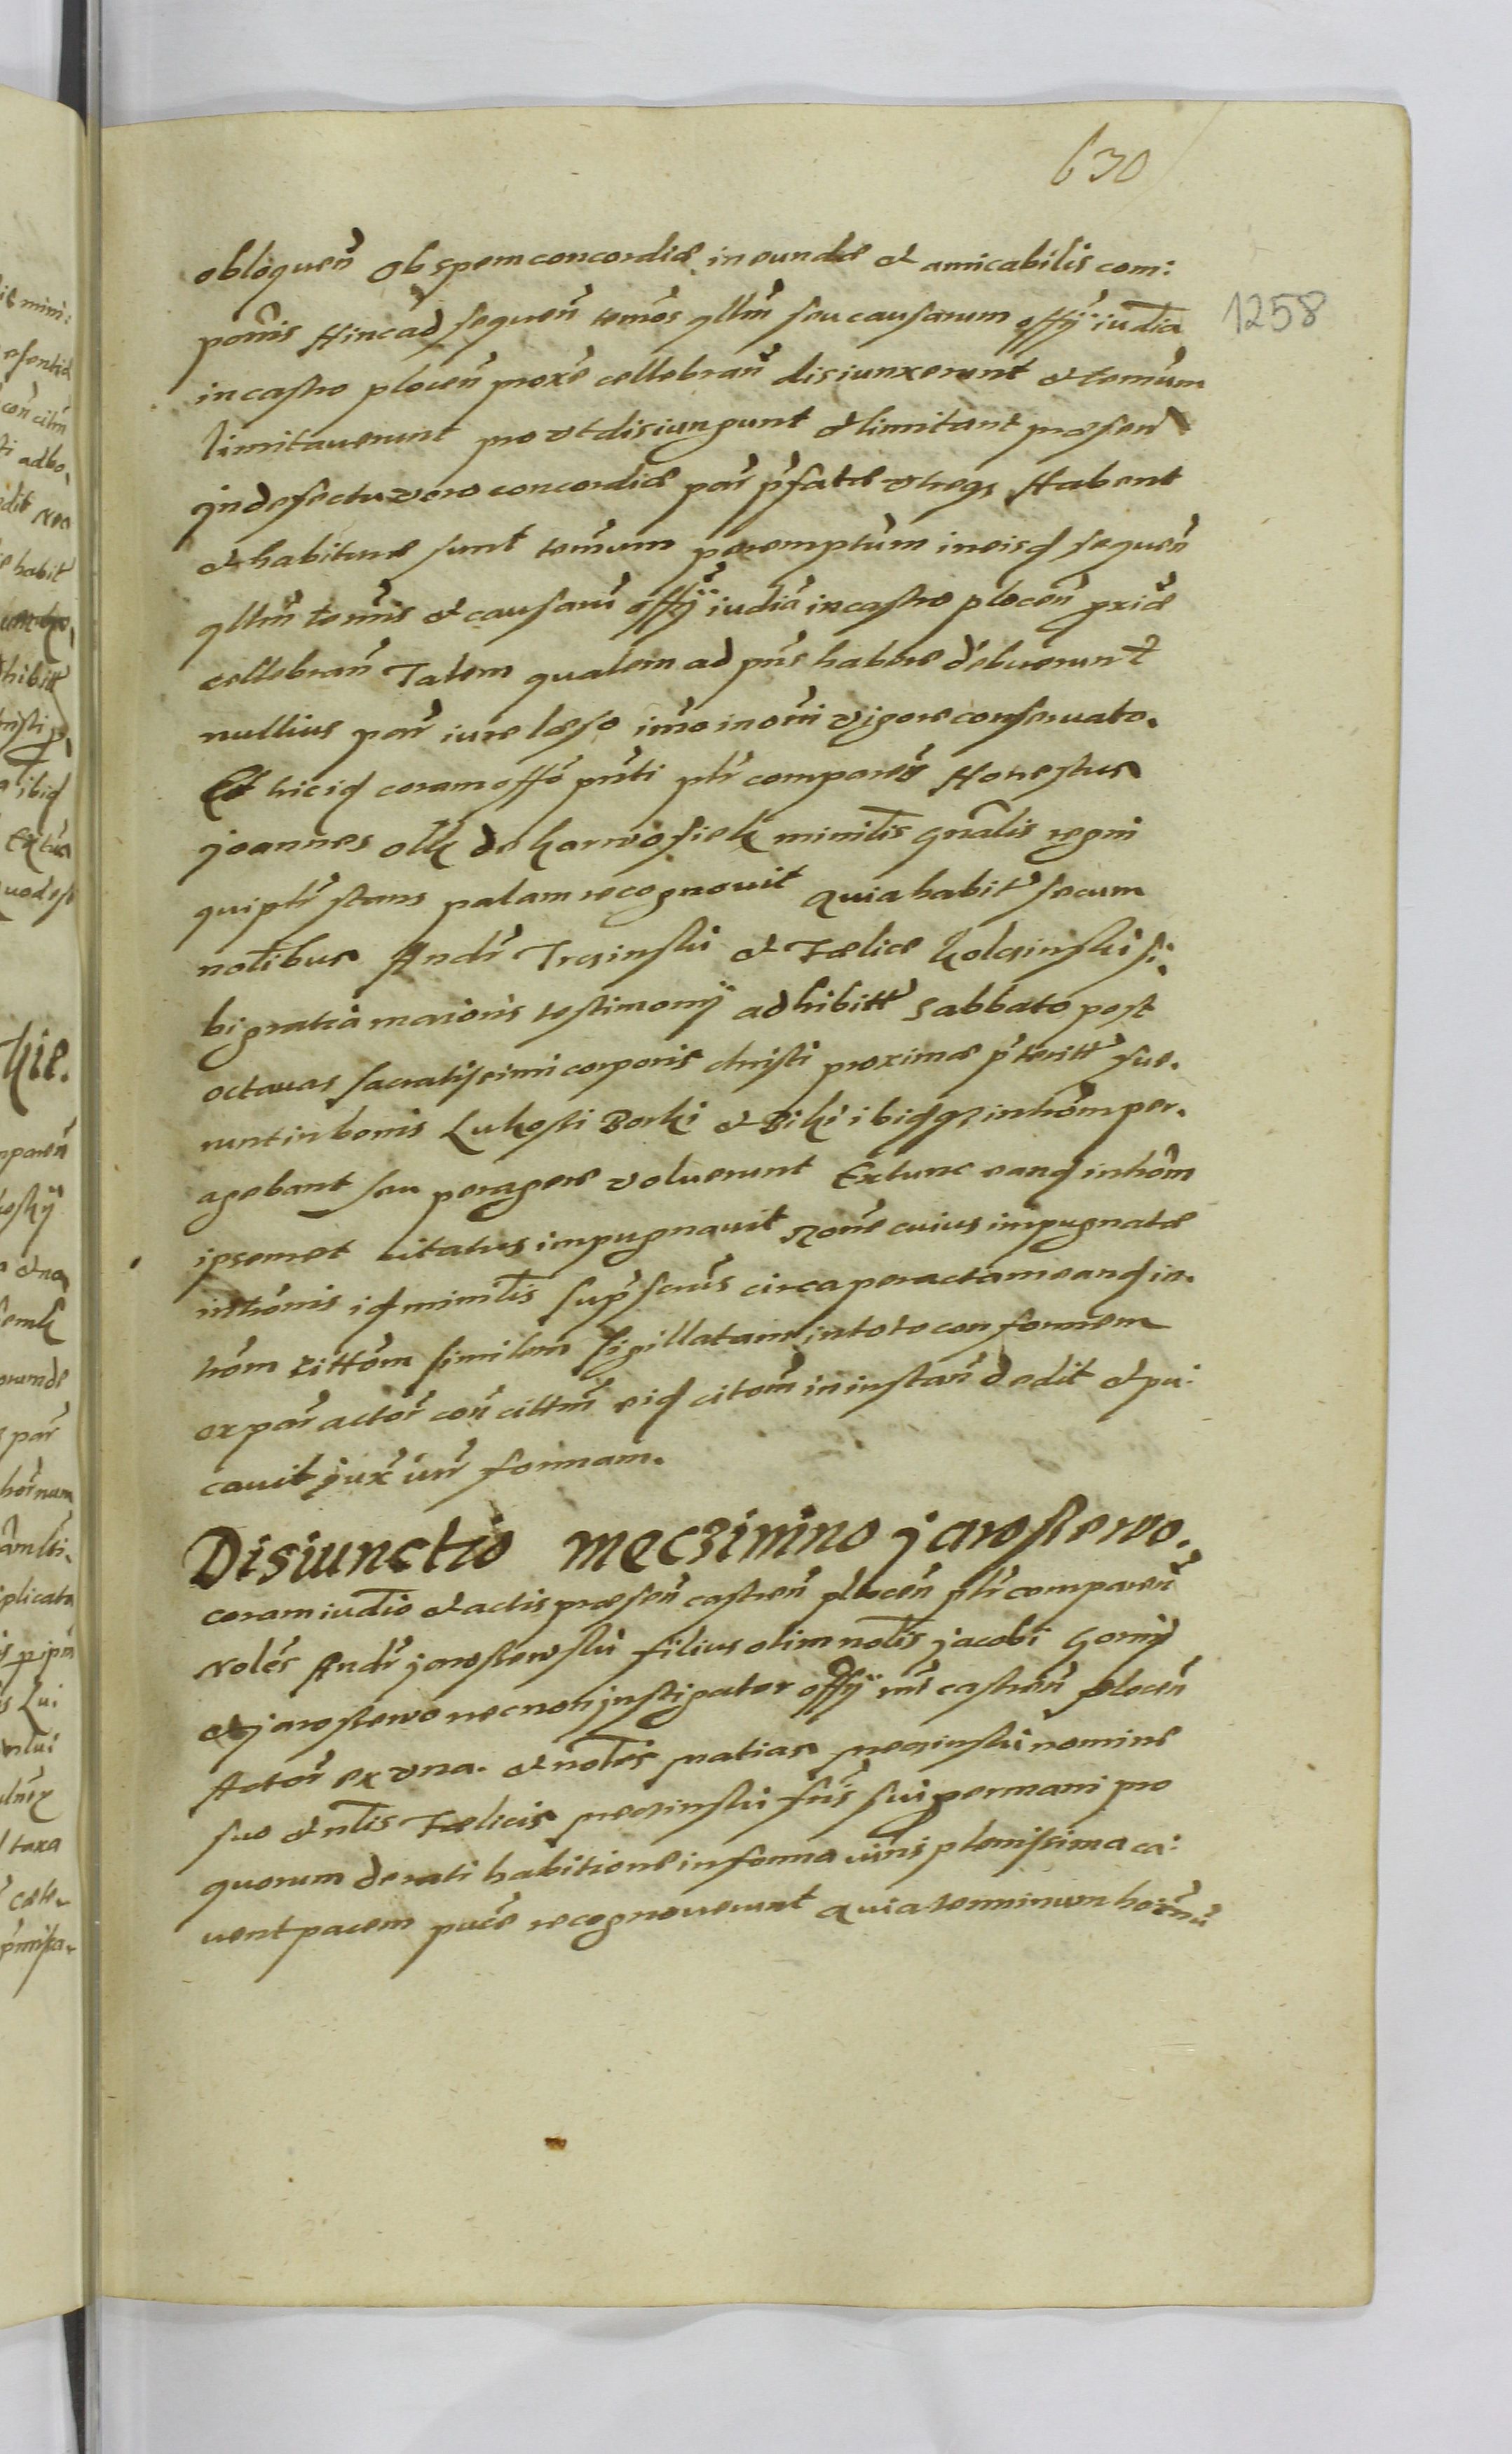 630
1258
obloquen̄ Ob spem concordiæ in eundæ et amicabilis com:
pōnis Hinc ad sequen̄ temōs qllm̄ seu causarum offÿ iudīa
in castro plocen̄ proxē cellebran̄ disiunxerunt et temūm
limitauerunt pro vt disiungunt et limitant præsen
jn defectu vero concordiæ par̄ p̄fatæ vtreqȝ Habent
et habituræ sunt temūm peremptūm in eisd sequen̄
qllm̄ temīs et causarū offÿ iudīa in castro plocen̄ prīæ
cellebran̄ Talem qualem ad pn̄s habere debuerunt
nullius par̄ iure læso im̄o in om̄i vigore conseruato.
Et hic id coram offō pn̄ti pl̄r comparen̄ Honestus
joannes olk de karwosiek minilis gn̄alis regni
qui pl̄r stans palam recognouit Quia habit secum
nolibus And̄r Trzinski et Fælice kolczinski si:
bi gratia maioris testimonÿ adhibitt Sabbato post
octauas sacratissimi corporis christi proximæ p̄teritt fue.
runt in bonis Lukosti Borki et Biki ibiqȝ inhōm per.
agebant seu peragere voluerunt Extunc eand inhōm
ipsemet citatus impugnauit Rōne cuius impugnatæ
inhōnis id minilis sup̄scrus circa peractam eand in.
hōm Littōm similem sigillatam in toto conformem
ex par̄ actōr con̄ cittm̄ eid citōm in instan̄ dedit et pu:
cauit jux̄ iur̄ formam.
Disiunctio Meczimino jarostewo.
coram iudīo et actis præsen̄ castren̄ plocen̄ pl̄r comparen̄
Nolēs And̄r jarostewski filius olim nolis jacobi Gomÿ
de jarostewo nec non jnstigator offÿ iur̄ castren̄ plocen̄
Actōr ex vna. et nolēs Matias
suo et nlis Fælicis frīs sui germani pro
quorum de rati habitione in forma iuris plenissima ca:
uent pacem puce recognouerunt Quia terminum